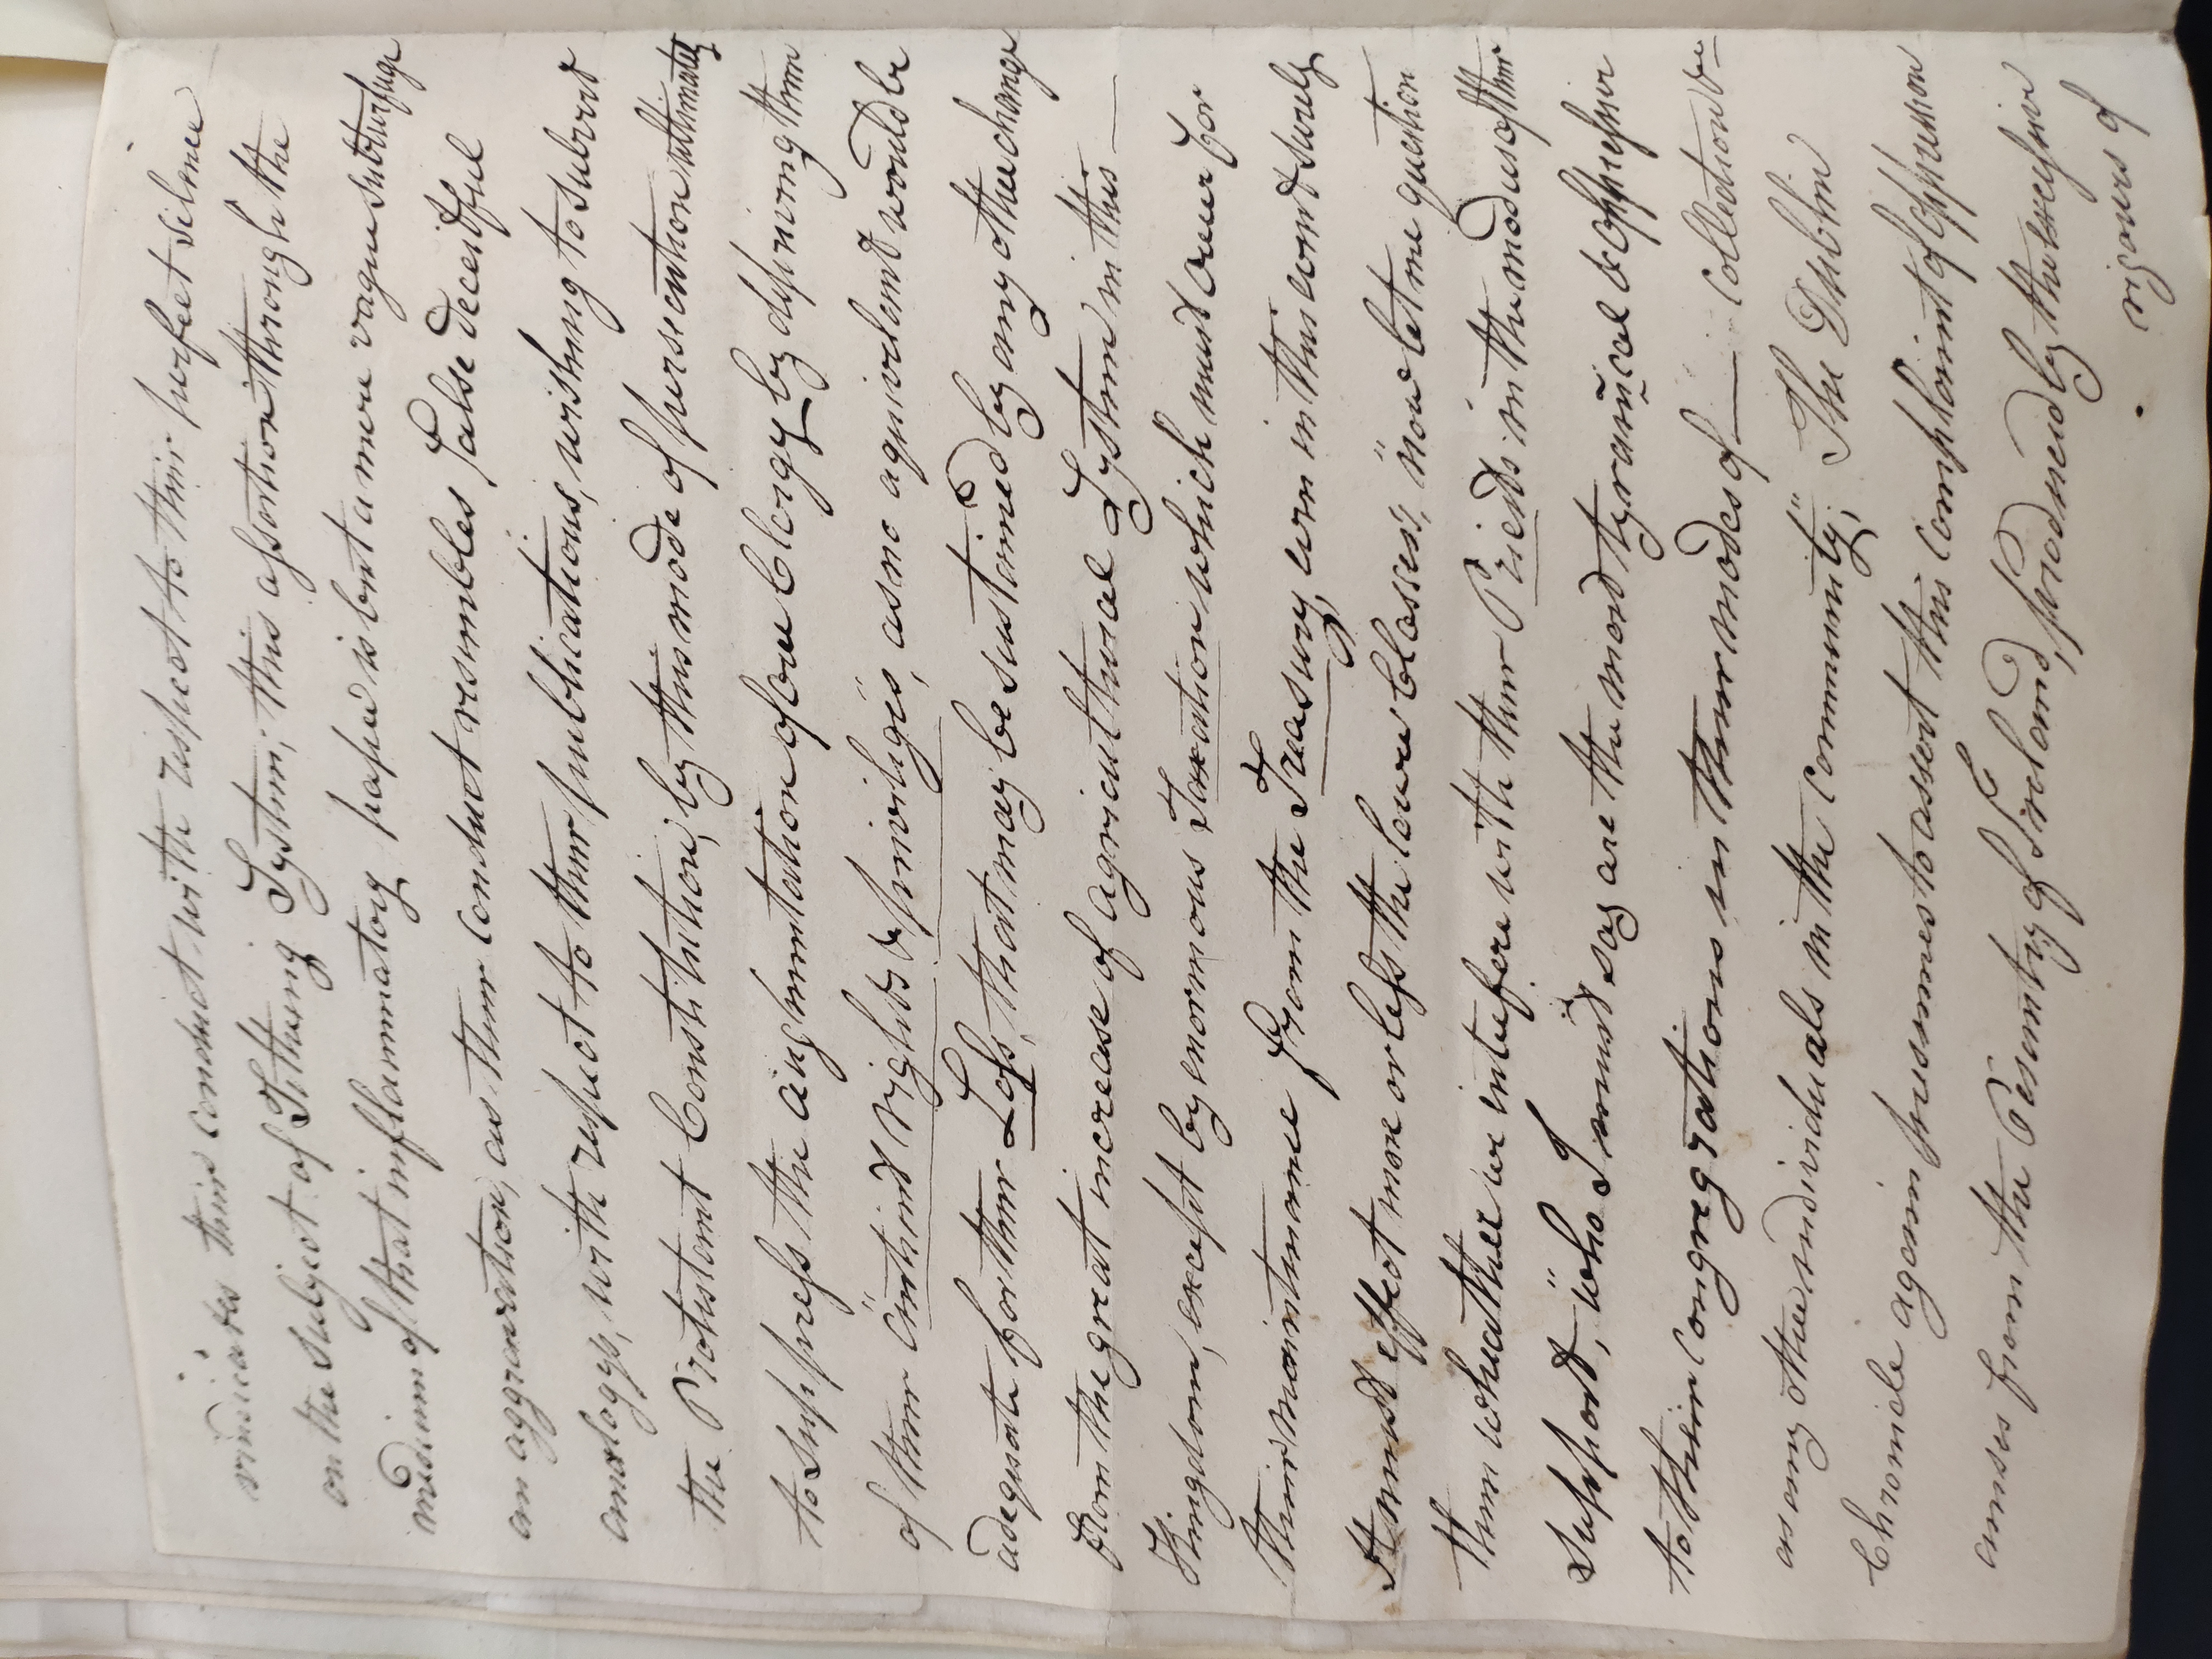 vindicates their conduct with respect to their perfect silence
on the Subject of Tithing System; this assertion through the
medium of that inflammatory paper is but a mere vague subterfuge
an aggravation, as their conduct resembles false deceitful
analogy, with respect to their publications, wishing to subvert
the Protestant Constitution, by this mode of persecution ultimately
to suppress the augmentation of our Clergy by depriving them
of their antient rights & privileges, as no equivalent would be
adequate for their Loss, that may be sustained by any other change
from the great increase of agricultural System in this —
Kingdom, except by enormous Taxation which must occur for
their maintenance from the Treasury, even in this event surely
it must effect more or less the lower Classes, now let me question
them wheather we interfere with their Priests in the modus of their
support, who I must say are the most tyranical & oppressive
to their congregations in their modes of — collection &c—
as any other individuals in the community; The Dublin
Chronicle again presumes to assert this complaint of oppression
arises from the Pesantry of Ireland, produced by the excessive
rigours of